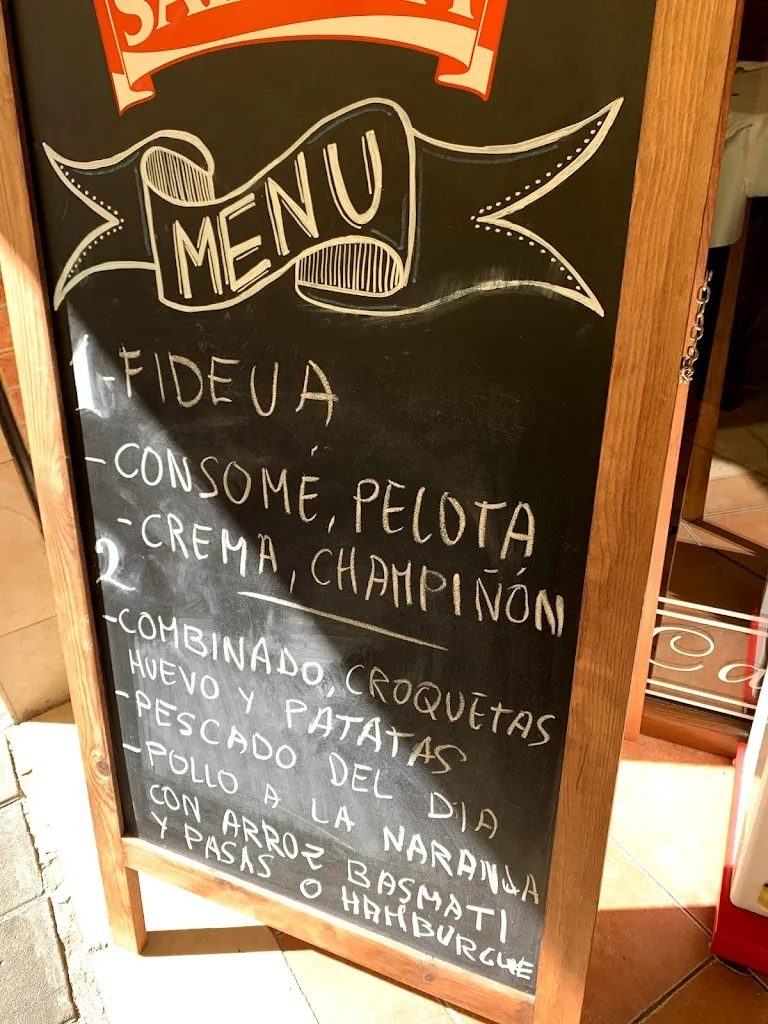 MENU
1-FIDEUA
-CONSOMÉ, PELOTA
-CREMA, CHAMPIÑÓN
2
-COMBINADO, CROQUETAS
HUEVO Y PATATAS
-PESCADO DEL DIA
-POLLO A LA NARANJA
CON ARROZ BASMATI
Y PASAS O HAMBURGUE
Ca